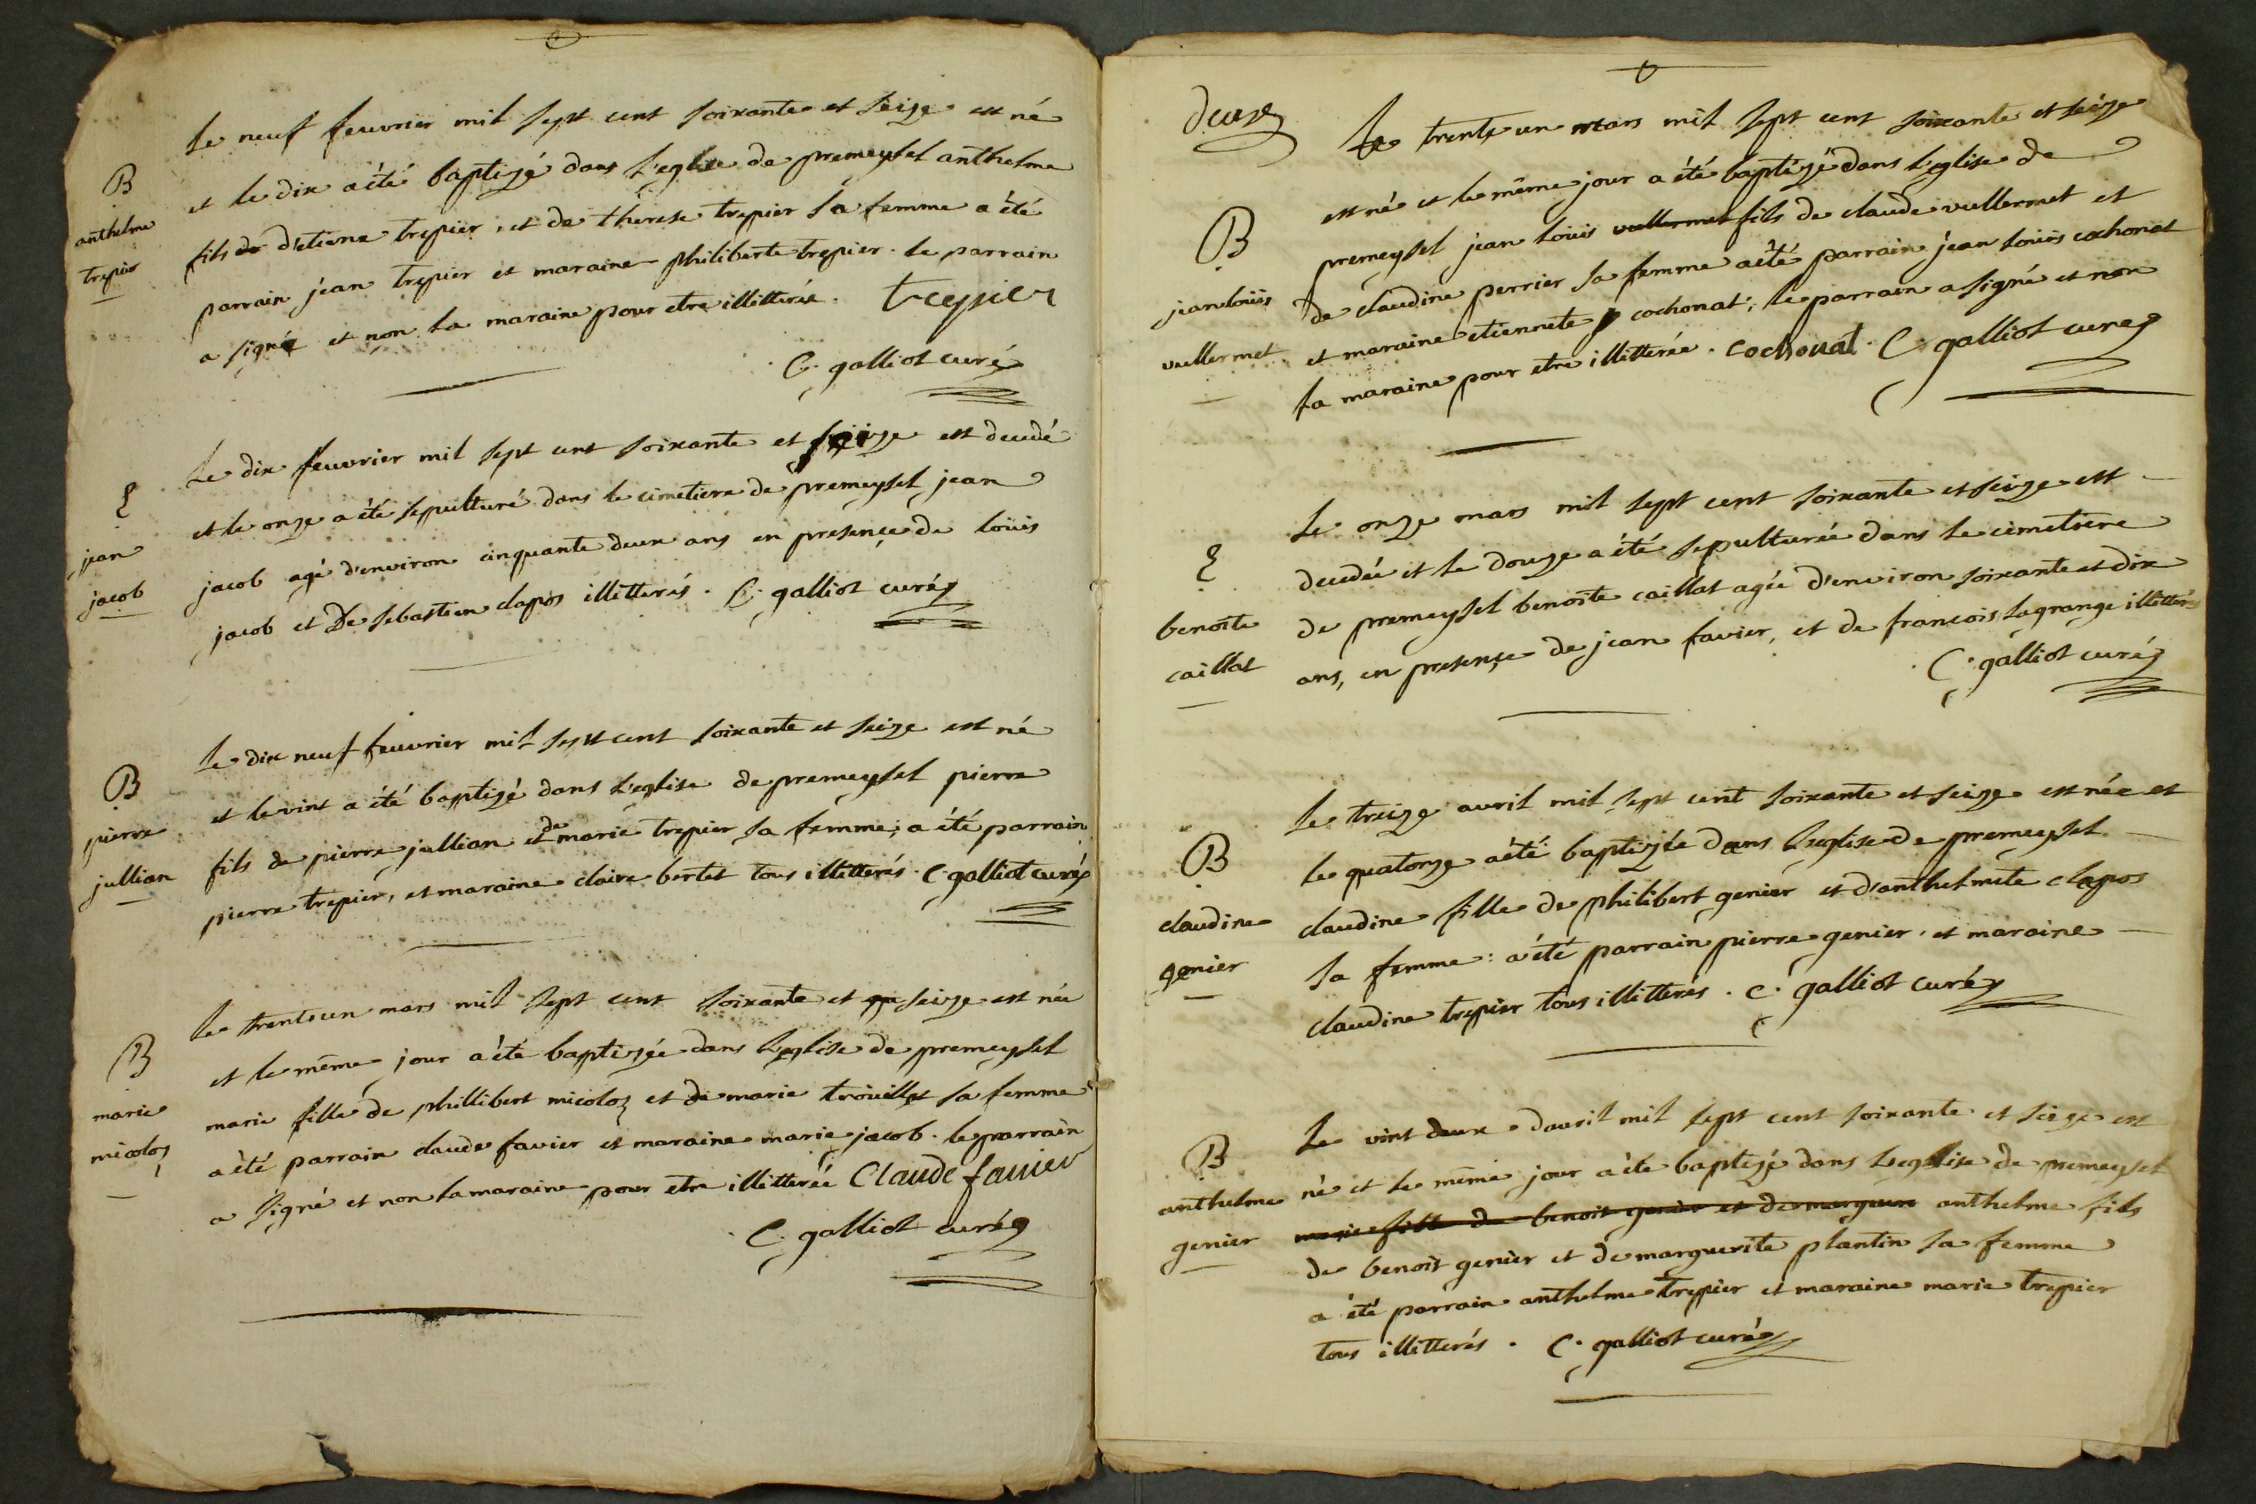 le neuf feuvrier mil sept cent soixante et seize est né
B
et le dix a été baptizé dans l'eglise de premeysel anthelme
anthelme
fils de d'etiene trepier, et de therese trepier sa femme a été
trepier
parrain jean trepier et maraine philiberte trepier. le parrain
a signé et non la maraine pour etre illitterée. trepier
C. galliot curé
le dix feuvrier mil sept cent soixante et seize est decedé
et le onze a été sepulturé dans le cimetiere de premeysel jean
jean
jacob agé d'environ cinquante deux ans en presence de loüis
jacob
jacob et De sebastien clapos illitterés. C. galliot curé
le dix neuf feuvrier mil sept cent soixante et seize est né
B
et le vint a été baptizé dans l'eglise de premeysel pierre
pierre
fils de pierre jullian et de marie trepier sa femme; a été parrain
jullian
pierre trepier, et maraine claire bertet tous illitterés. C. galliot curé
le trente un mars mil sept cent soixante et seize est née
B
et le même jour a été baptizée dans l'eglise de premeysel
marie
marie fille de phillibert micoloz et de marie troüillet sa femme
micoloz
a été parrain claude favier et maraine marie jacob. le parrain
a signé et non la maraine pour etre illitterée Claude favier
C. galliot curé
deux
Le trente un mars mil sept cent soixante et seize
est né et le même jour a été baptizé dans l'eglise de
B
premeysel jean loüis vullermet fils de claude vullermet et
jean loüis
de claudine perrier sa femme a été parrain jean loüis cochonat
vullermet
et maraine etiennete cochonat, le parrain a signé et non
la maraine pour etre illitterée. cochonat. C. galliot curé
le onze mars mil sept cent soixante et seize est
decedée et le douze a été sepulturée dans le cimetiere
benoite
de premeysel benoite caillat agée d'environ soixante et dix
caillat
ans, en presence de jean favier, et de francois lagrange illitterés
C. galliot curé
le treize avril mil sept cent soixante et seize est née et
B
le quatorze a été baptizée dans l'eglise de premeysel
claudine
claudine fille de philibert genier et d'anthelmete clapos
genier
sa femme: a été parrain pierre genier, et maraine
claudine trepier tous illitterés. C. galliot curé
le vint deux d'avril mil sept cent soixante et seize est
B
né et le même jour a été baptizé dans l'eglise de premeysel
anthelme
marie fille de benoit genier et de marguer anthelme fils
genier
de benoit genier et de marguerite plantin sa femme
a été parrain anthelme trepier et maraine marie trepier
tous illitterés. C. galliot curé